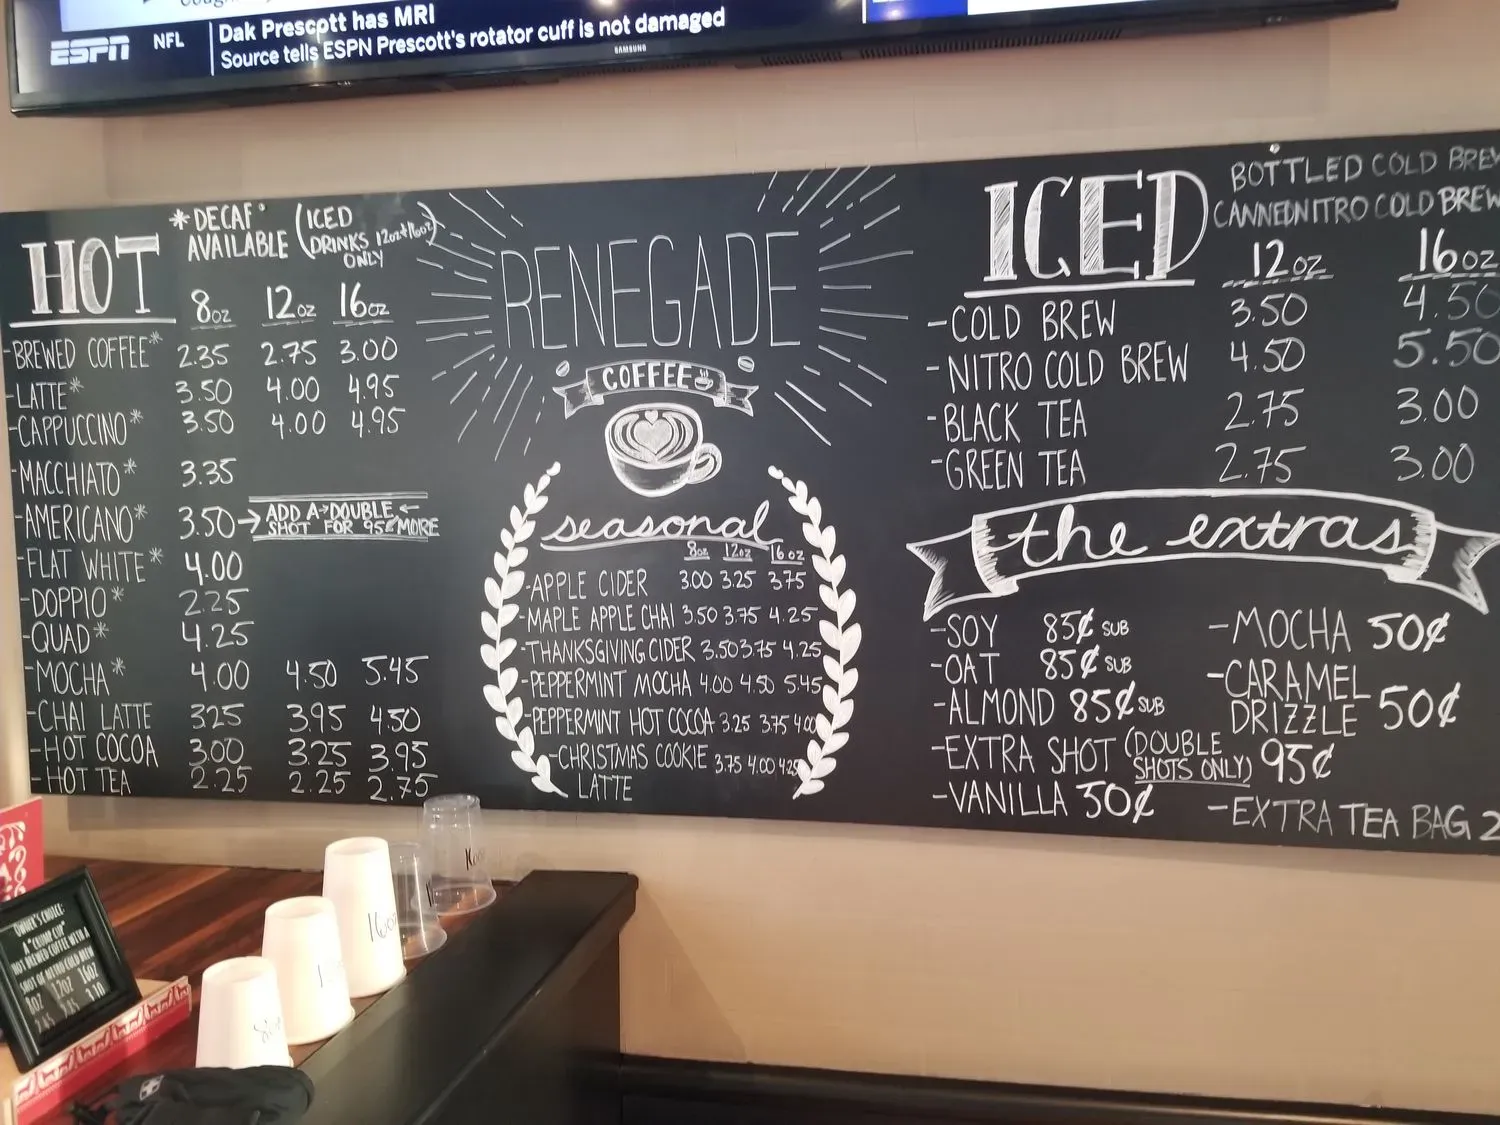 ESPN NFL Dak Prescott has MRI
Source tells ESPN Prescott's rotator cuff is not damaged
SAMSUNG
HOT
*DECAF AVAILABLE
(ICED DRINKS 12oz+16oz ONLY)
8oz 12oz 16oz
-BREWED COFFEE* 2.35 2.75 3.00
-LATTE* 3.50 4.00 4.95
-CAPPUCCINO* 3.50 4.00 4.95
-MACCHIATO* 3.35
-AMERICANO* 3.50
ADD A DOUBLE
SHOT FOR 95¢ MORE
-FLAT WHITE* 4.00
-DOPPIO* 2.25
-QUAD* 4.25
-MOCHA* 4.00 4.50 5.45
-CHAI LATTE 325 3.95 4.50
-HOT COCOA 3.00 3.25 3.95
-HOT TEA 2.25 2.25 2.75
RENEGADE
COFFEE
seasonal
8oz 12oz 16oz
-APPLE CIDER 3.00 3.25 3.75
-MAPLE APPLE CHAI 3.50 3.75 4.25
-THANKSGIVING CIDER 3.50 3.75 4.25
-PEPPERMINT MOCHA 4.00 4.50 5.45
-PEPPERMINT HOT COCOA 3.25 3.75 4.00
-CHRISTMAS COOKIE 3.75 4.00 4.25
LATTE
ICED
BOTTLED COLD BREW
CANNED NITRO COLD BREW
12oz 16oz
-COLD BREW 3.50 4.50
-NITRO COLD BREW 4.50 5.50
-BLACK TEA 2.75 3.00
-GREEN TEA 2.75 3.00
the extras
-SOY 85¢ SUB
-OAT 85¢ SUB
-ALMOND 85¢ SUB
-EXTRA SHOT (DOUBLE SHOTS ONLY) 95¢
-VANILLA 50¢
-MOCHA 50¢
-CARAMEL
DRIZZLE 50¢
-EXTRA TEA BAG
OWNER'S CHOICE:
A "CHUMP CUP"
HOT BREWED COFFEE WITH A
SHOT OF NITRO COLD BREW
8OZ 12OZ 16OZ
16oz